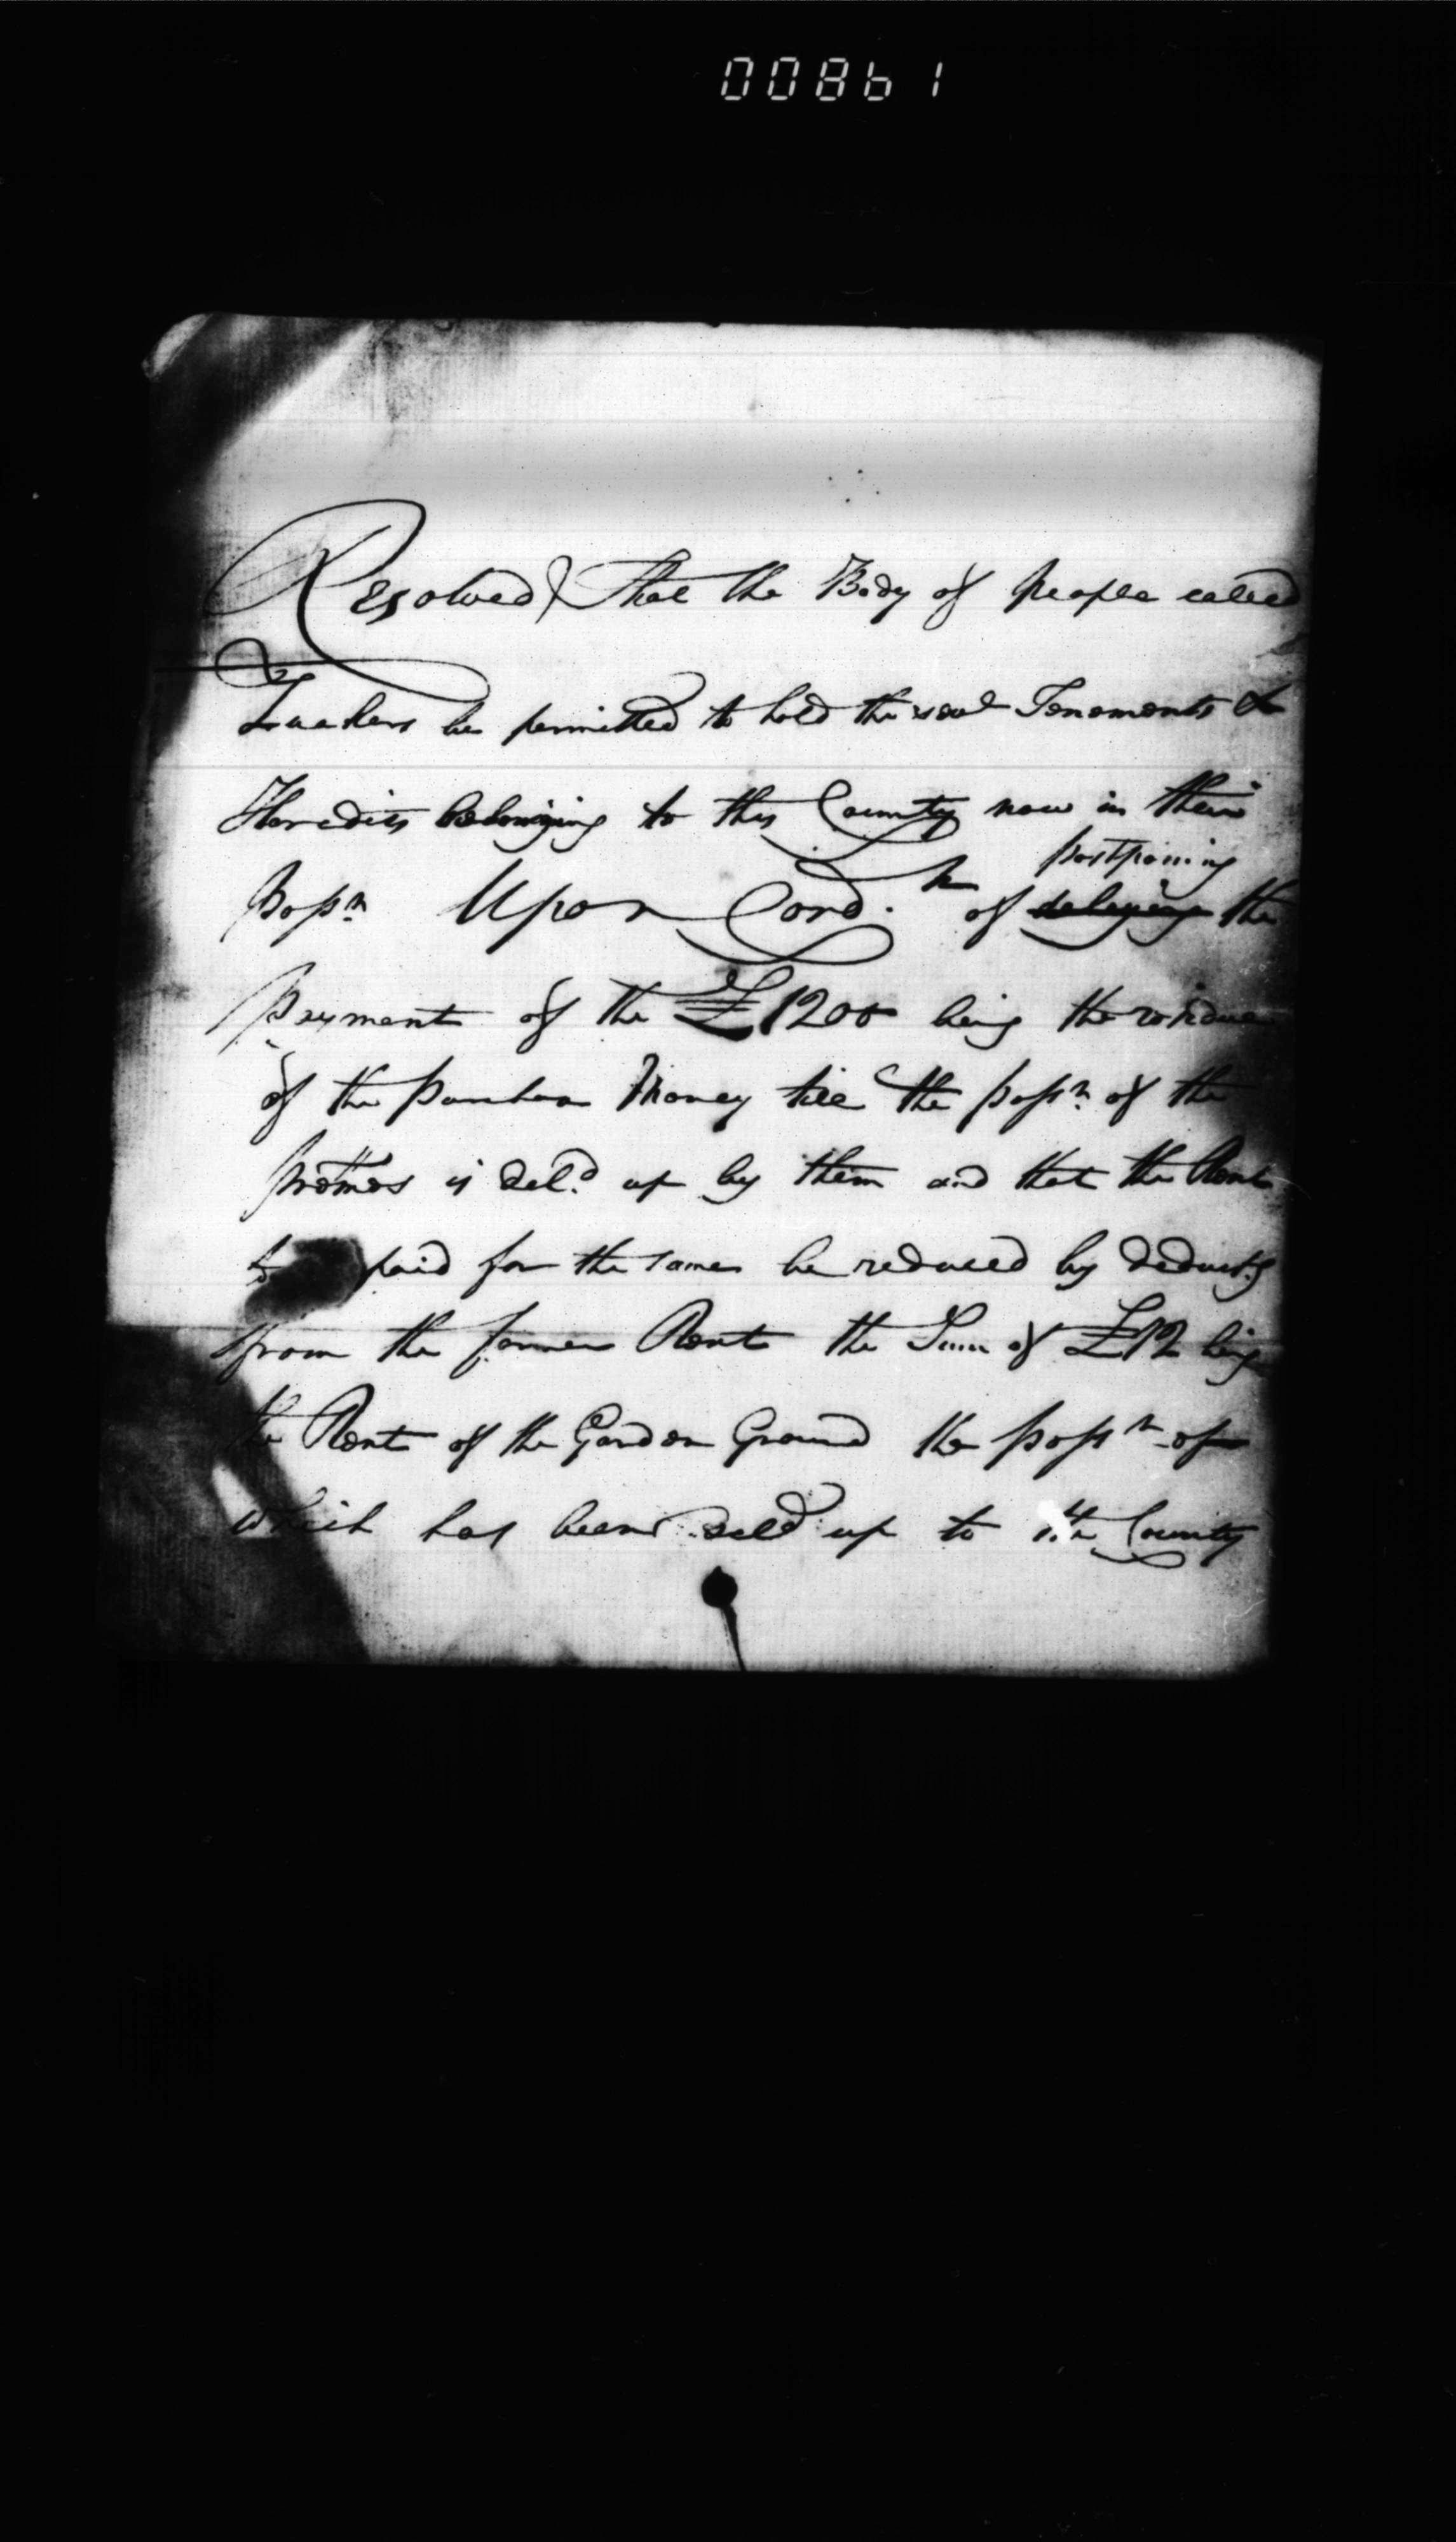 00861
Resolved That the Body of People called
Quakers be permitted to hold the sevl Tenements &
Heredits belonging to this County now in their
postponing
Possn Upon Cond.n of delaying the
Payment of the £1200 being the residue
of the Purchase Money till the possn of the
premes is deld up by them and that the Rent
to paid for the same be reduced by deductg
from the former Rent the Sum of £12 being
the Rent of the Garden Ground the possn of
which has been deld up to the County